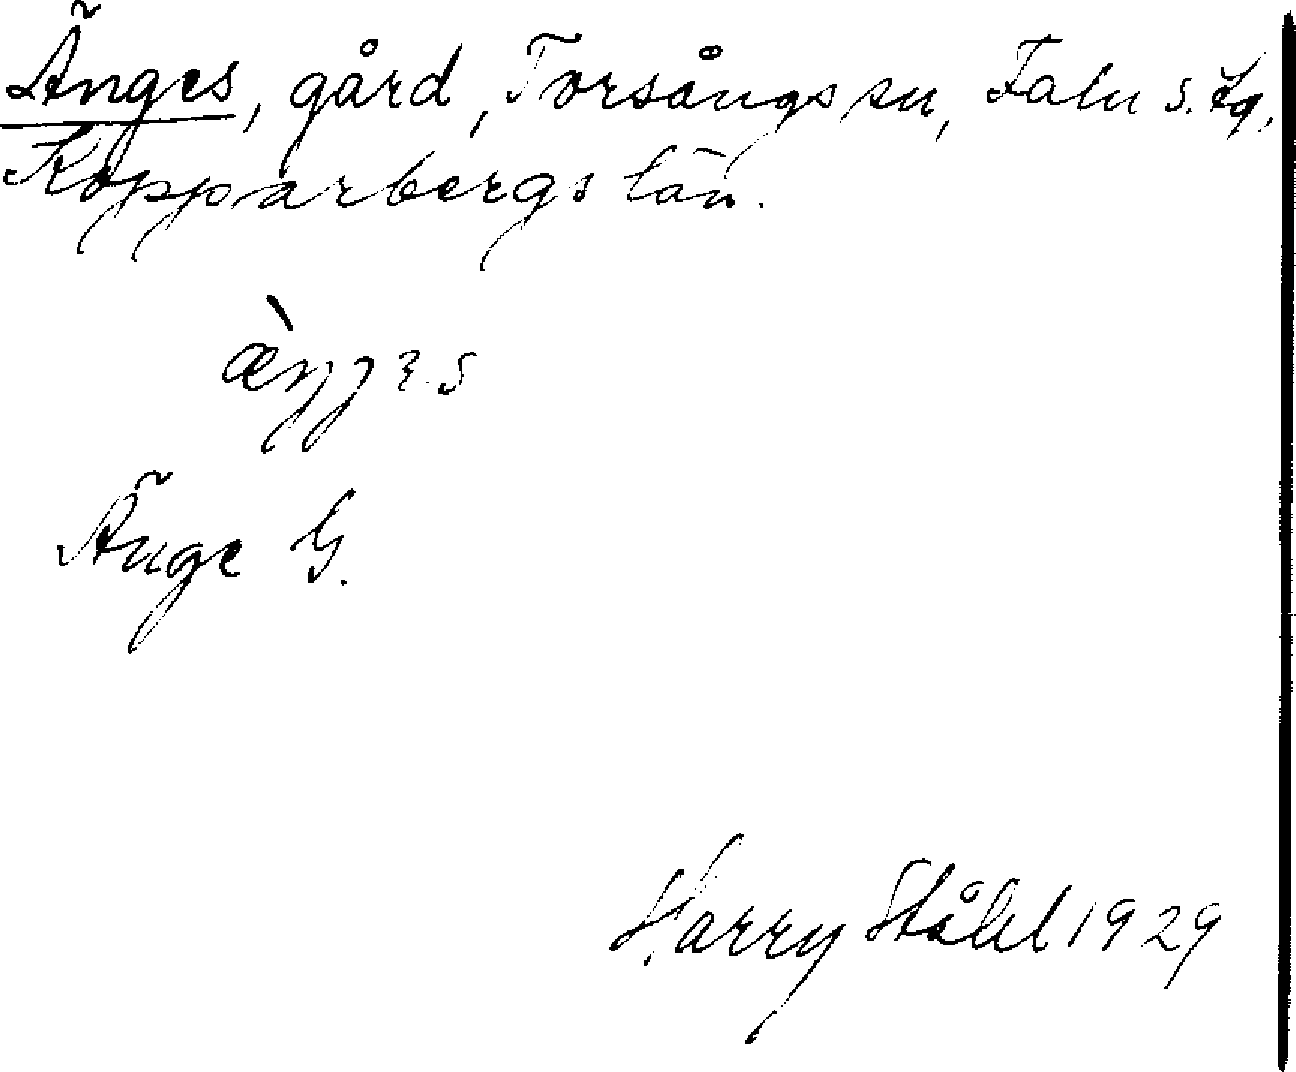 Änges, gård, Torsångs sn, Falu s. tg,
Kopparbergs län.
æ̀ŋŋɜs
Änge G.
Harry Ståhl 1929